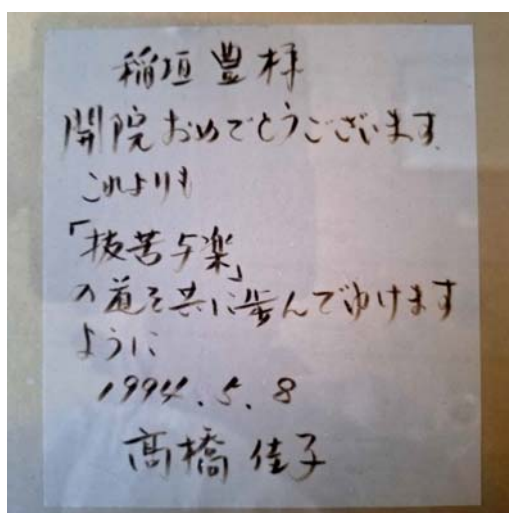 稲垣豊様
開院おめでとうございます
これよりも
「抜苦与楽」
の道を共に歩んでゆけます
ように
1994.5.8
高橋佳子